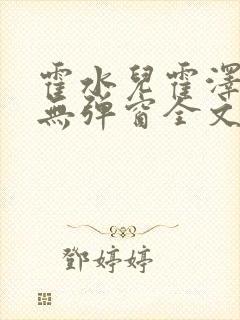 霍水兒霍澤
無彈窗全文
鄧婷婷